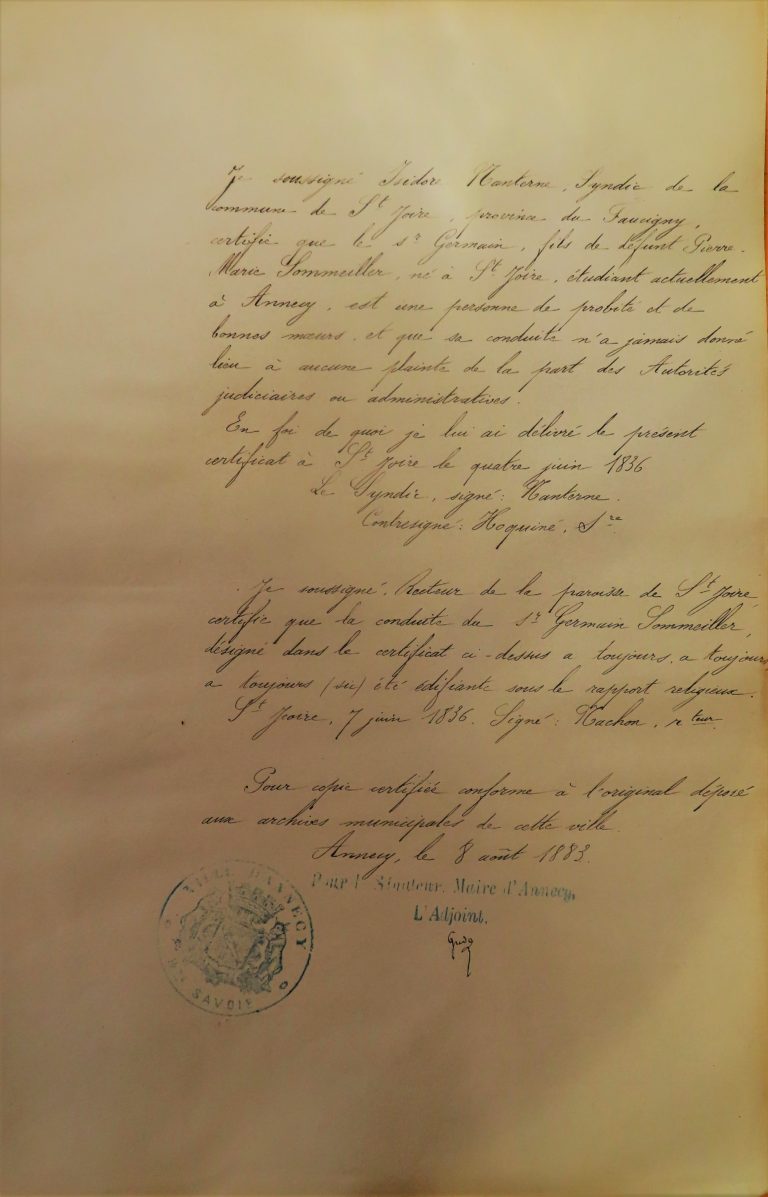 Je soussigné Isidore Nanterne, Syndic de la
commune de St Joire, province du Faucigny,
certifie que le sr Germain, fils de défunt Pierre-
Marie Sommeiller, né à St Joire, étudiant actuellement
à Annecy, est une personne de probité et de
bonnes mœurs, et que sa conduite n'a jamais donné
lieu à aucune plainte de la part des Autorités
judiciaires ou administratives.
En foi de quoi je lui ai délivré le présent
certificat à St Joire le quatre juin 1836
Le Syndic, signé: Nanterne.
Contresigné: Hoquiné, Sre
Je soussigné, Recteur de la paroisse de St Joire,
certifie que la conduite du sr Germain Sommeiller,
désigné dans le certificat ci-dessus a toujours, a toujours
a toujours (sic) été édifiante sous le rapport religieux.
St Joire, 7 juin 1836. Signé: Nachon, rteur
Pour copie certifiée conforme à l'original déposé
aux archives municipales de cette ville.
Annecy, le 8 août 1883.
Pour le Sénateur, Maire d'Annecy,
L'Adjoint,
VILLE D'ANNECY
SAVOIE